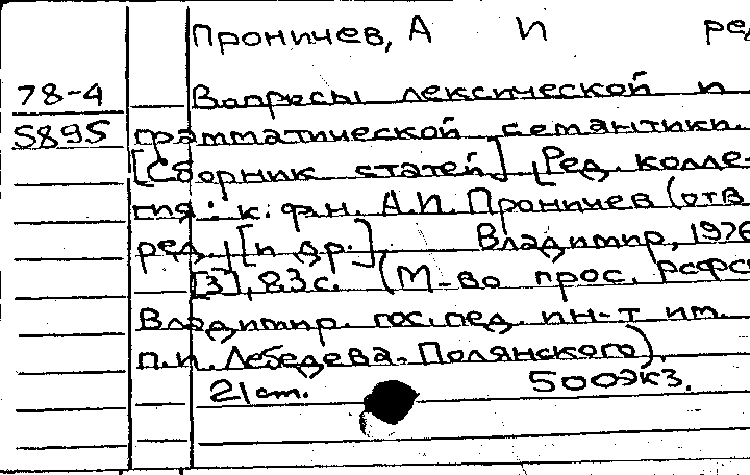 Проничев, А И ред
78-4 Вопросы лексической и
5895 грамматической семантики.
[Сборник статей] [Ред. колле-
гия: к.ф.н. А.И. Проничев (отв
ред.) [и др.]. Владимир, 1976
[3], 83 с. (М-во прос. РСФС
Владимир. гос. пед. ин-т им.
П.И. Лебедева-Полянского).
21 см. 500 экз.